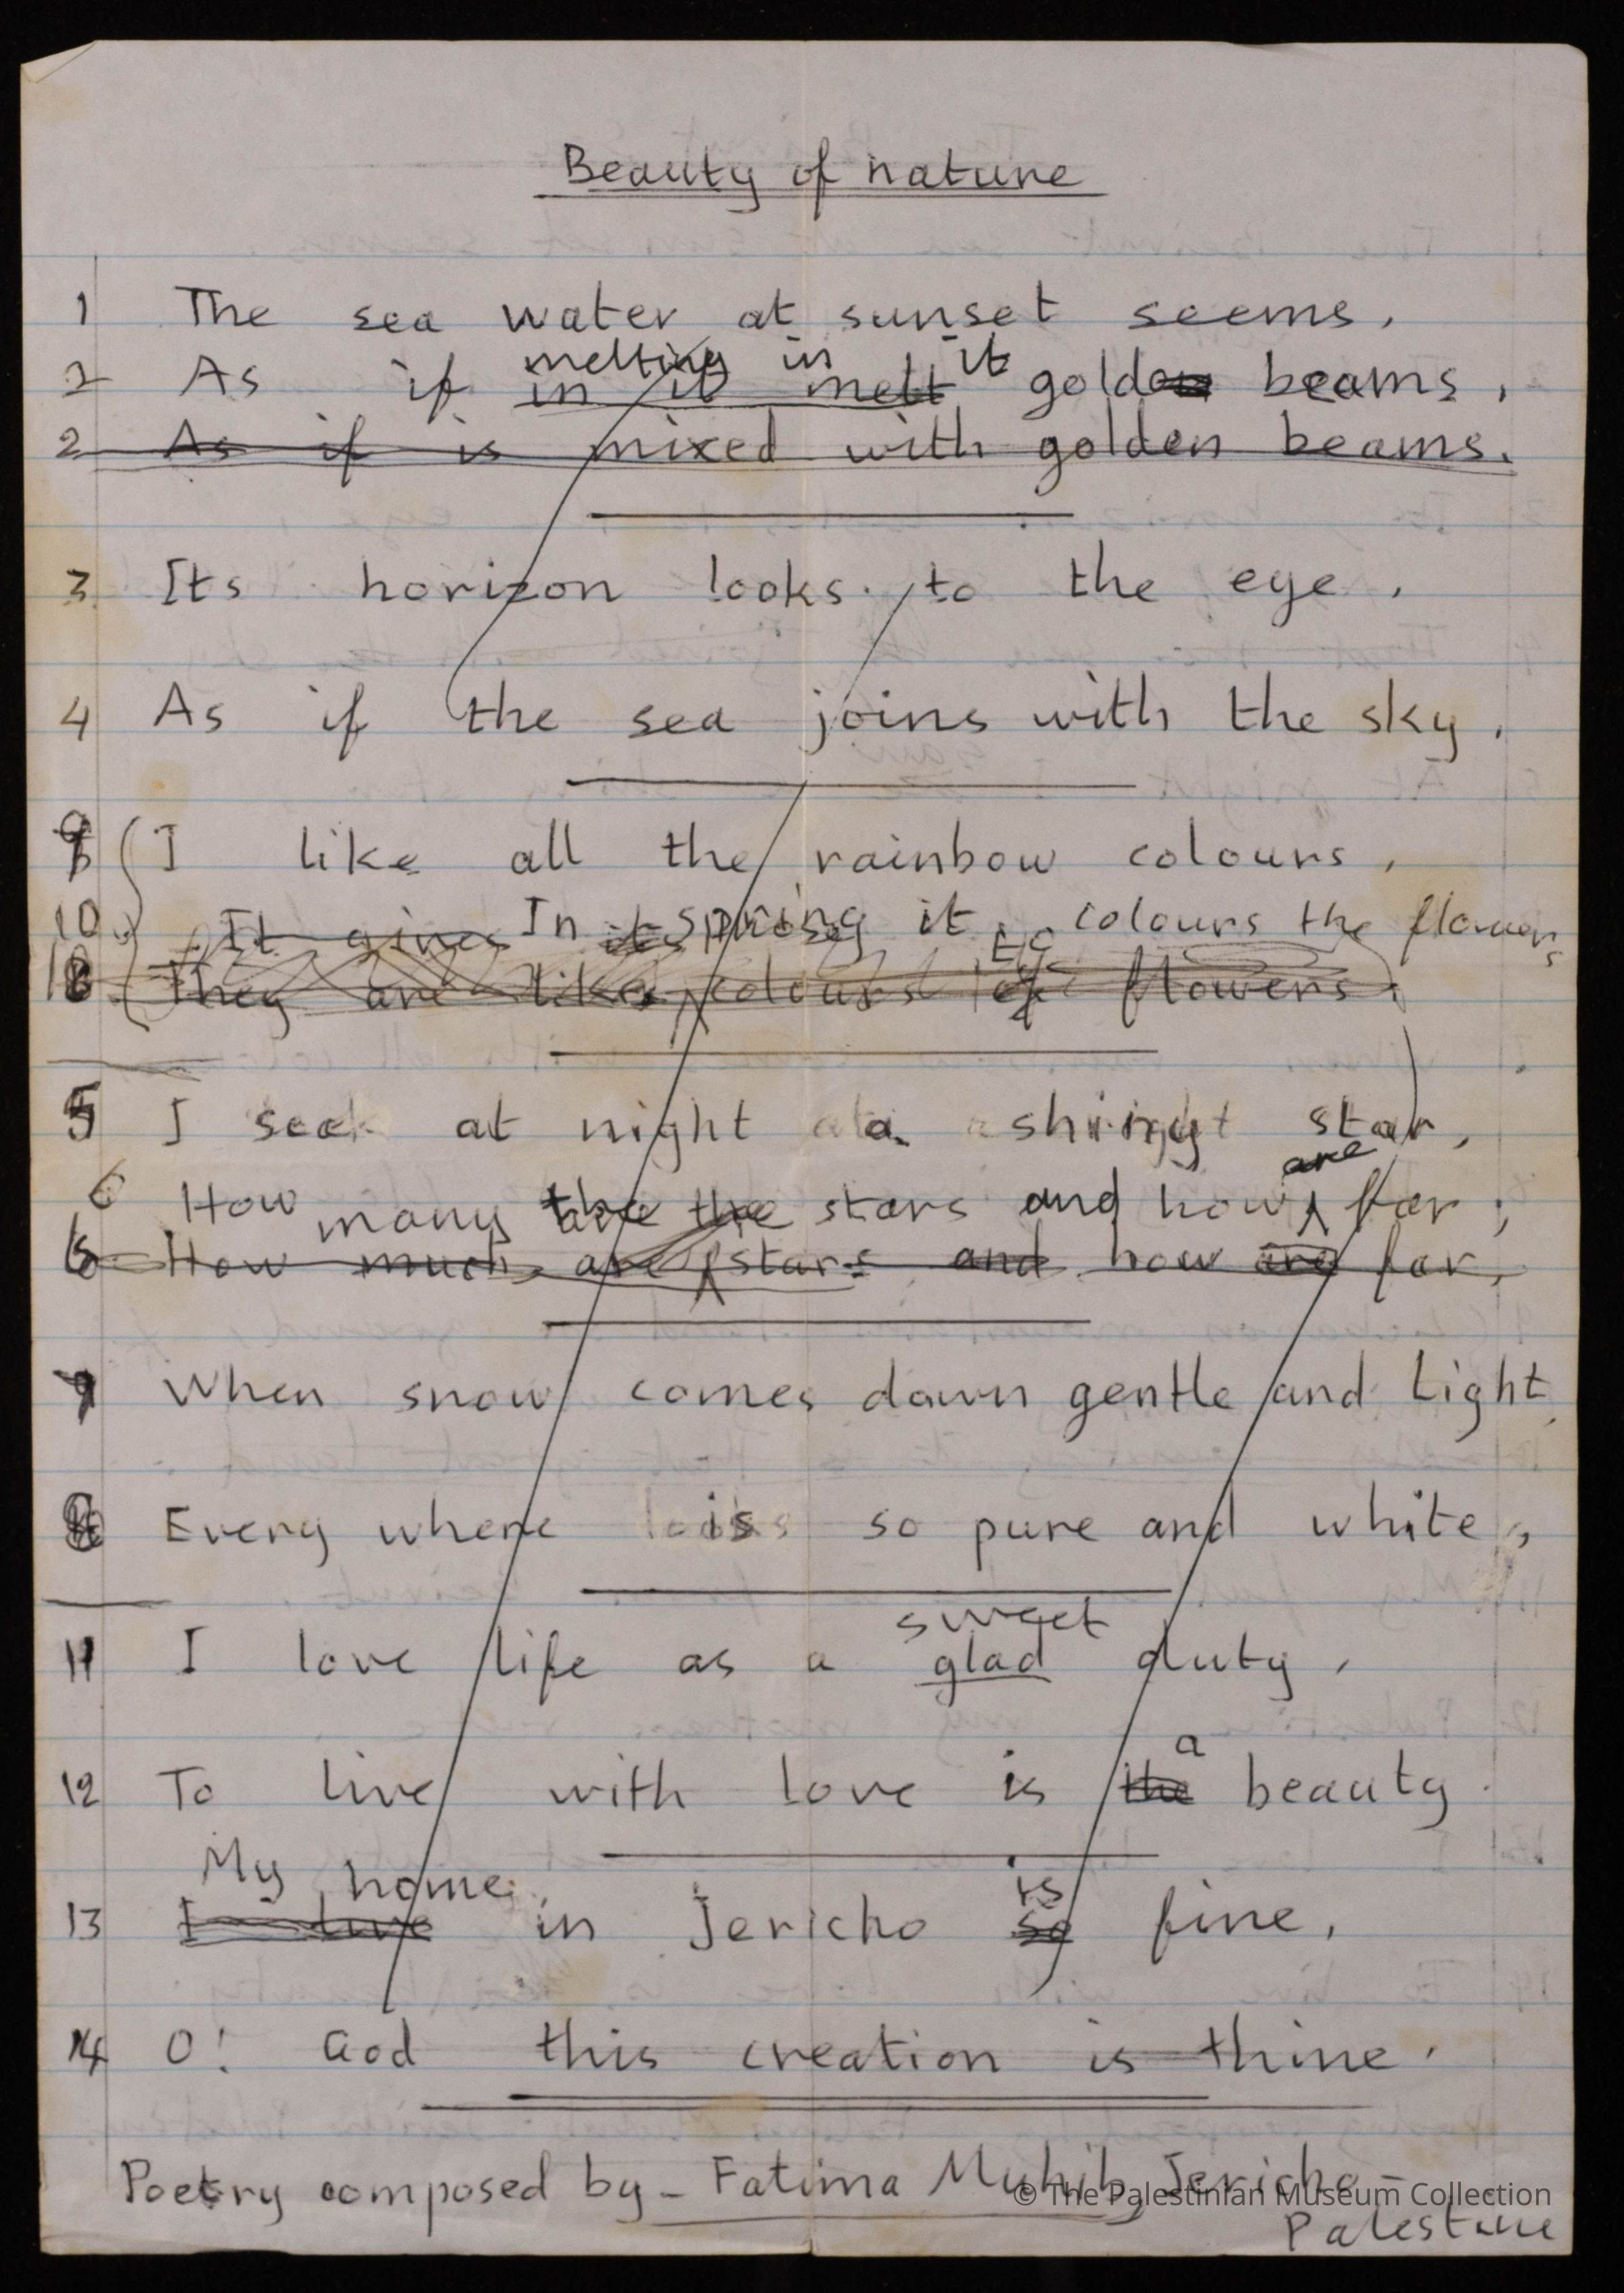 Beauty of nature
1 The sea water at sunset seems,
melting in it
2 As if in it melt golden beams,
2 As if is mixed with golden beams.
3 Its horizon looks to the eye,
4 As if the sea joins with the sky.
9 I like all the rainbow colours,
10 It gives In its spring it colours the flowers
They are like colours of flowers
5 I see at night a shiny star,
are
6 How many the stars and how far,
6 How much are stars and how are far,
7 When snow comes down gentle and light
8 Every where is so pure and white,
sweet
11 I love life as a glad duty,
a
12 To live with love is the beauty.
My home is
13 I live in Jericho so fine,
14 O! God this creation is thine.
Poetry composed by - Fatima Muhib, Jericho -
Palestine
© The Palestinian Museum Collection